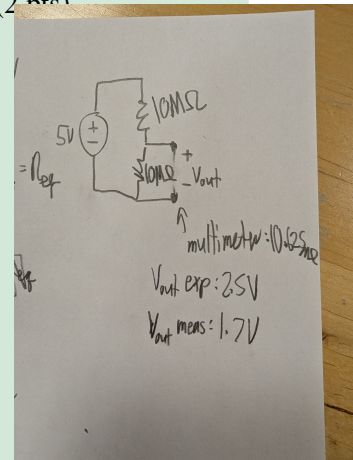 (2 pts)
10MΩ
5V
+
-
10MΩ
+
- Vout
= Req
Req
multimeter: 10.625MΩ
Vout exp: 2.5V
Vout meas: 1.7V